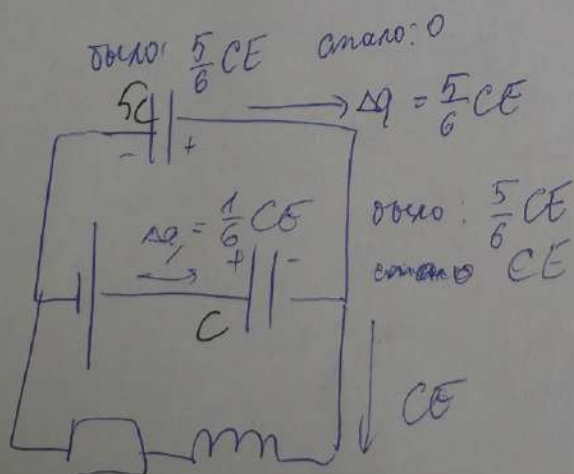 было: 5/6 CE стало: 0
5C
- +
→ Δq = 5/6 CE
Δq = 1/6 CE
+ -
было: 5/6 CE
стало CE
C
CE